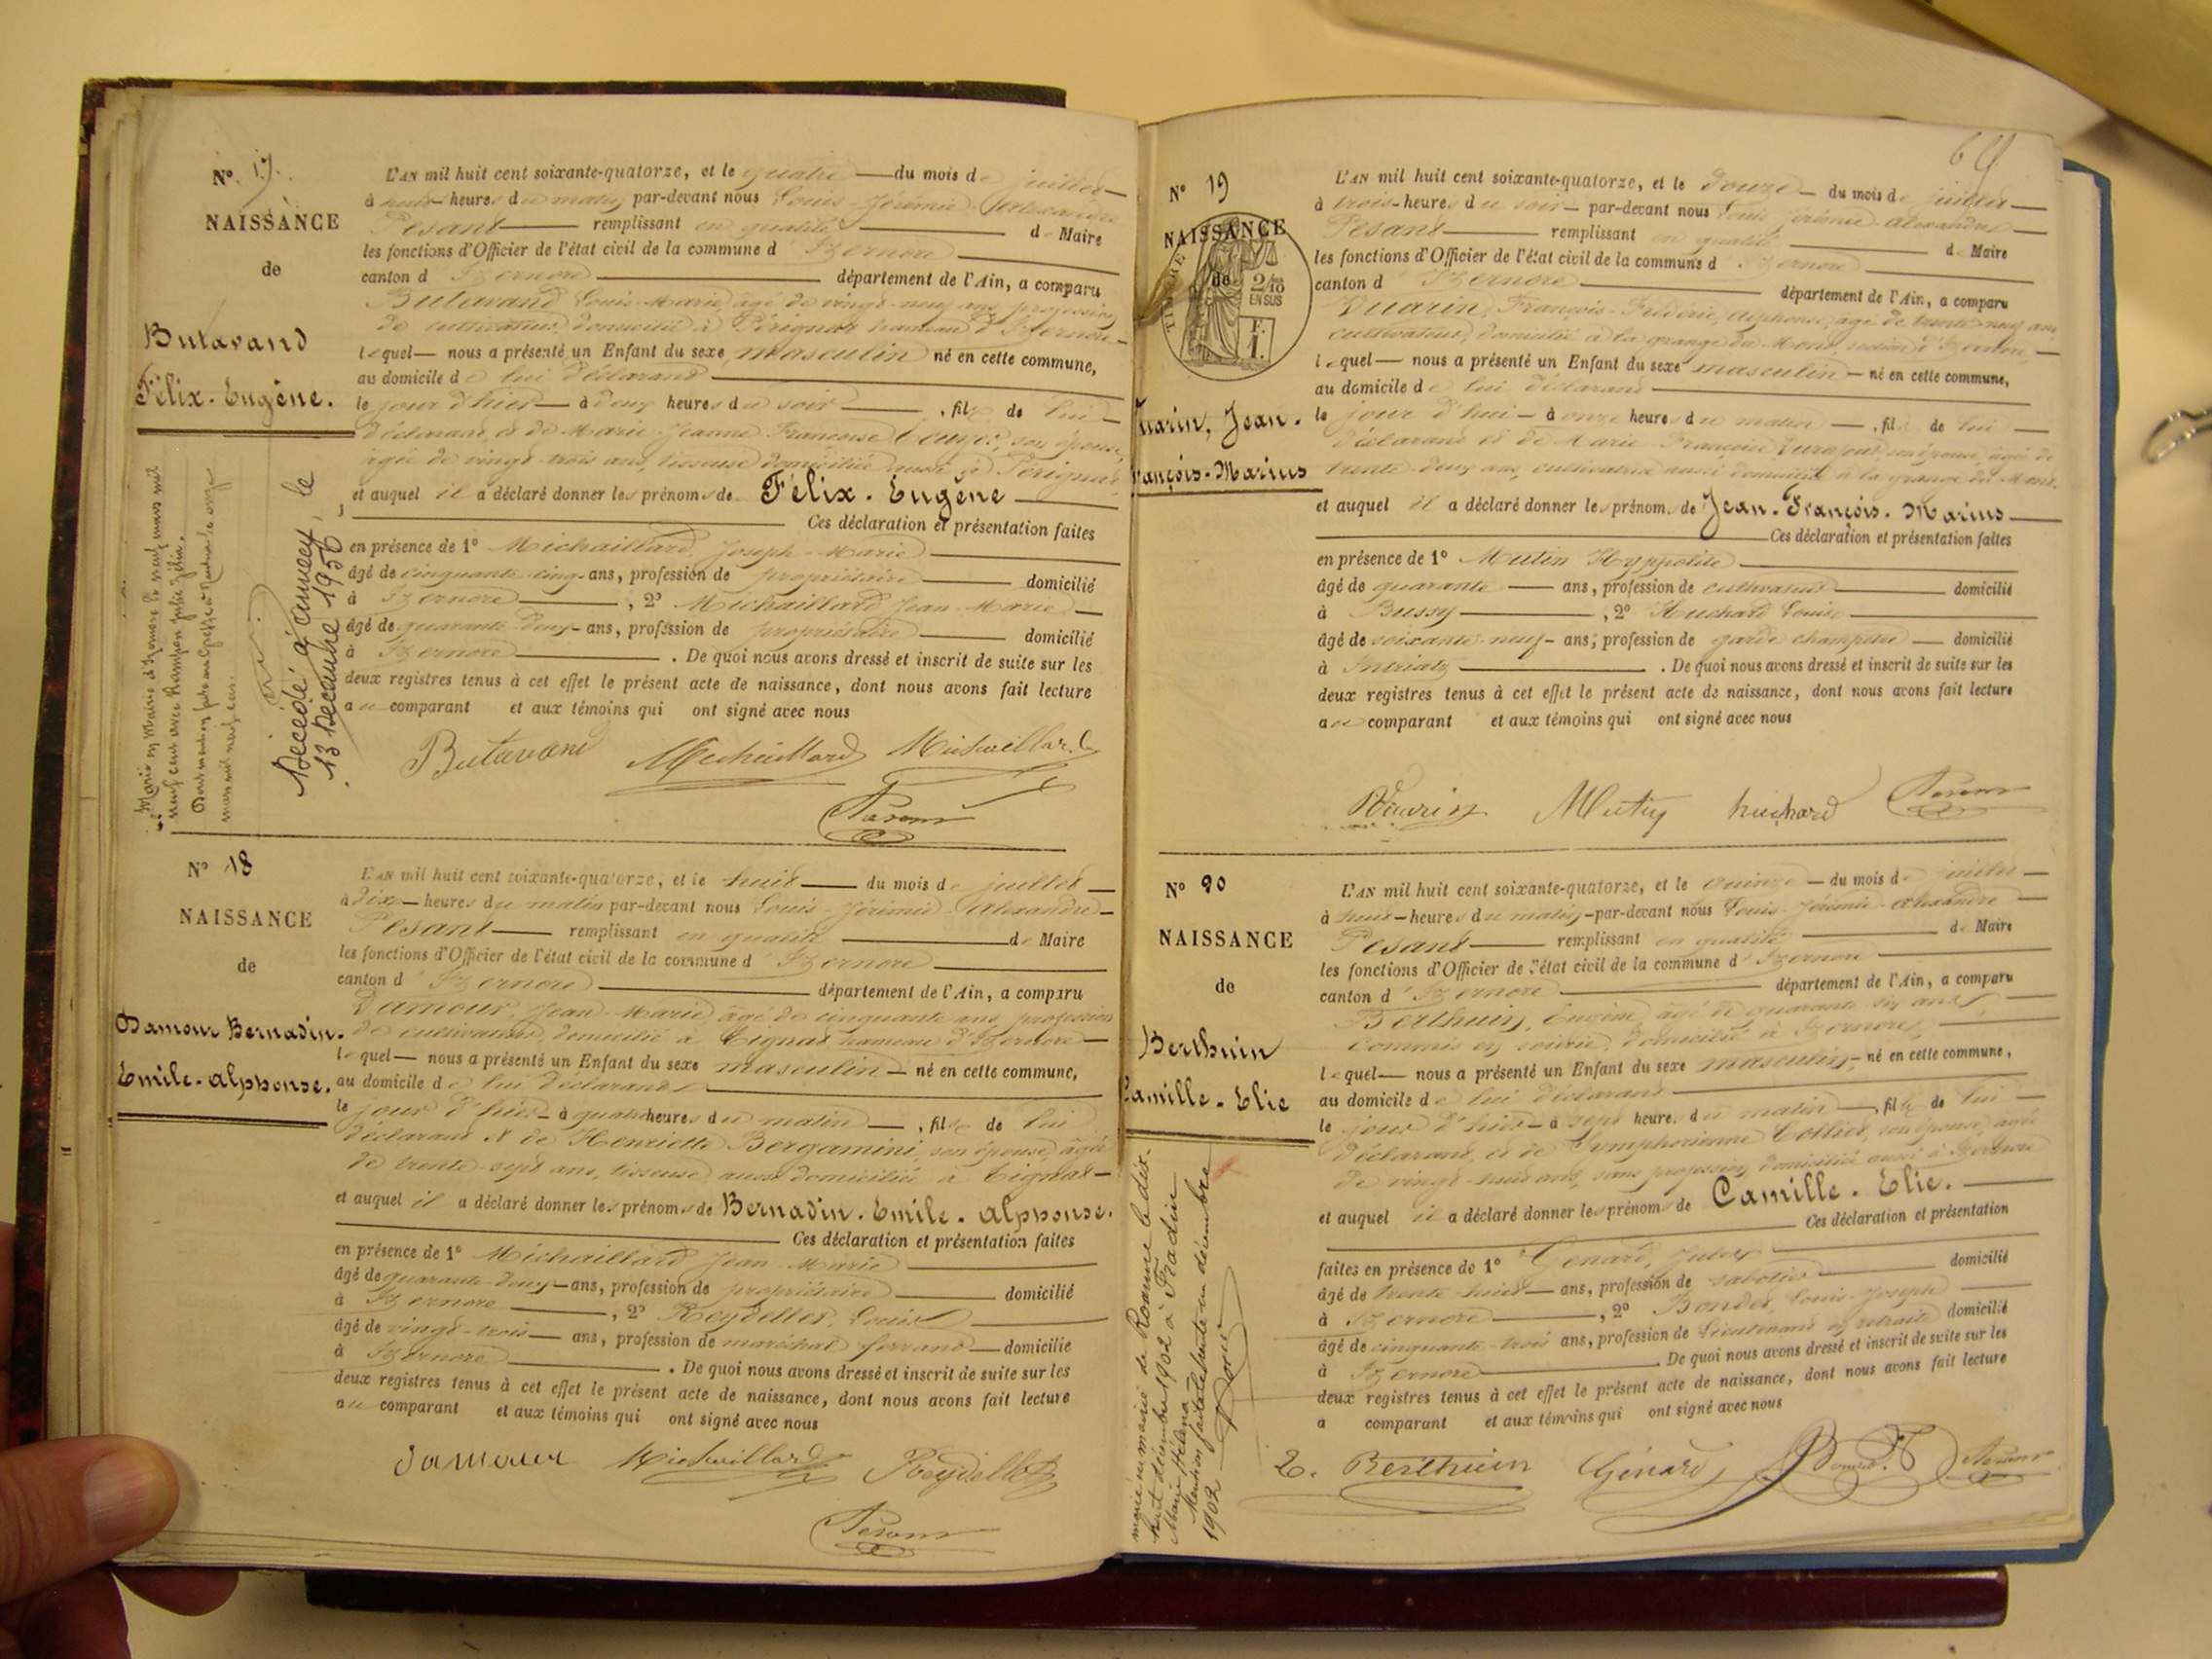 N° 17.
NAISSANCE
de
Butavand
Félix-Eugène.
L'AN mil huit cent soixante-quatorze, et le quatre — du mois de juillet —
à huit heures du matin par-devant nous Louis-Jérémie-Alexandre
Pesant — remplissant en qualité — de Maire
les fonctions d'Officier de l'état civil de la commune d'Izernore —
canton d'Izernore — département de l'Ain, a comparu
Butavand Louis-Marie, âgé de vingt-neuf ans, profession
de cultivateur, domicilié à Pérignat hameau d'Izernore —
lequel — nous a présenté un Enfant du sexe masculin né en cette commune,
au domicile de lui déclarant —
le jour d'hier — à deux heures du soir — , fils de lui
déclarant, et de Marie-Jeanne Françoise son épouse,
âgée de vingt-trois ans, tisseuse domiciliée aussi à Pérignat,
et auquel il a déclaré donner les prénoms de Félix-Eugène —
Ces déclaration et présentation faites
en présence de 1° Michaillard, Joseph-Marie —
âgé de cinquante-cinq ans, profession de propriétaire — domicilié
à Izernore — , 2° Michaillard Jean-Marie —
âgé de quarante-deux ans, profession de propriétaire — domicilié
à Izernore — . De quoi nous avons dressé et inscrit de suite sur les
deux registres tenus à cet effet le présent acte de naissance, dont nous avons fait lecture
au comparant et aux témoins qui ont signé avec nous
Butavand Michaillard Michaillard
Pesant
Marié en mairie d'Izernore le neuf mars mil
neuf cent avec Rampon Julie Zélia.
mars mil neuf cent.
Décédé à Annecy, le
13 Décembre 1956
N° 18
NAISSANCE
de
Damour Bernadin.
Emile-Alphonse.
L'AN mil huit cent soixante-quatorze, et le huit — du mois de juillet —
à dix — heures du matin par-devant nous Louis-Jérémie-Alexandre —
Pesant — remplissant en qualité — de Maire
les fonctions d'Officier de l'état civil de la commune d'Izernore —
canton d'Izernore — département de l'Ain, a comparu
Damour, Jean-Marie, âgé de cinquante ans, profession
de cultivateur, domicilié à Tignat hameau d'Izernore —
lequel — nous a présenté un Enfant du sexe masculin — né en cette commune,
au domicile de lui déclarant —
le jour d'hier — à quatre heures du matin — , fils de lui
déclarant et de Henriette Bergamini, son épouse, âgée
de trente-sept ans, tisseuse, aussi domiciliée à Tignat —
et auquel il a déclaré donner les prénoms de Bernadin-Emile-Alphonse.
Ces déclaration et présentation faites
en présence de 1° Michaillard Jean-Marie —
âgé de quarante-deux — ans, profession de propriétaire — domicilié
à Izernore — , 2° Reydellet, Louis —
âgé de vingt-trois — ans, profession de maréchal ferrant — domicilié
à Izernore — . De quoi nous avons dressé et inscrit de suite sur les
deux registres tenus à cet effet le présent acte de naissance, dont nous avons fait lecture
au comparant et aux témoins qui ont signé avec nous
Damour Michaillard Reydellet
Pesant
N° 19
NAISSANCE
de
2/10
EN SUS
F.
1.
uarin, Jean-
rançois-Marius
L'AN mil huit cent soixante-quatorze, et le douze — du mois de juillet —
à trois — heures du soir — par-devant nous Louis-Jérémie-Alexandre
Pesant — remplissant en qualité — de Maire
les fonctions d'Officier de l'état civil de la commune d'Izernore
canton d'Izernore — département de l'Ain, a comparu
François-Frédéric, Alphonse, âgé de trente-neuf ans
cultivateur, domicilié à la grange du Mont, —
lequel — nous a présenté un Enfant du sexe masculin — né en cette commune,
au domicile de lui déclarant —
le jour d'hui — à onze heures du matin — , fils de lui —
déclarant et de Marie Françoise son épouse, âgée de
trente-deux ans, cultivatrice aussi domiciliée à la grange du Mont.
et auquel il a déclaré donner les prénoms de Jean-François-Marius —
Ces déclaration et présentation faites
en présence de 1° Mutin Hyppolite —
âgé de quarante — ans, profession de cultivateur — domicilié
à Bussy — , 2° Huchard Louis —
âgé de soixante-neuf — ans, profession de garde champêtre — domicilié
à Intriat — . De quoi nous avons dressé et inscrit de suite sur les
deux registres tenus à cet effet le présent acte de naissance, dont nous avons fait lecture
au comparant et aux témoins qui ont signé avec nous
Mutin huchard Pesant
N° 20
NAISSANCE
de
Berthuin
Camille-Elie
L'AN mil huit cent soixante-quatorze, et le quinze — du mois de juillet —
à huit — heures du matin — par-devant nous Louis-Jérémie-Alexandre —
Pesant — remplissant en qualité — de Maire
les fonctions d'Officier de l'état civil de la commune d'Izernore —
canton d'Izernore — département de l'Ain, a comparu
Berthuin, Eugène, âgé de quarante-six ans, —
commis en soierie, domicilié à Izernore, —
lequel — nous a présenté un Enfant du sexe masculin, — né en cette commune,
au domicile de lui déclarant —
le jour d'hier — à sept heures du matin — , fils de lui —
déclarant, et de Symphorienne Collier, son épouse, âgée
de vingt-huit ans, sans profession, domiciliée aussi à Izernore
et auquel il a déclaré donner les prénoms de Camille-Elie. —
Ces déclaration et présentation
faites en présence de 1° Génard, Jules — domicilié
âgé de trente-huit — ans, profession de sabotier —
à Izernore — , 2° Bondet, Louis-Joseph —
âgé de cinquante-trois ans, profession de Lieutenant en retraite domicilié
à Izernore — . De quoi nous avons dressé et inscrit de suite sur les
deux registres tenus à cet effet le présent acte de naissance, dont nous avons fait lecture
a comparant et aux témoins qui ont signé avec nous
E. Berthuin Génard Bondet Pesant
marié en mairie de Roanne le dix-
huit décembre 1902 à Fradin
Marie-Héléna
Mention faite le trente un décembre
1902